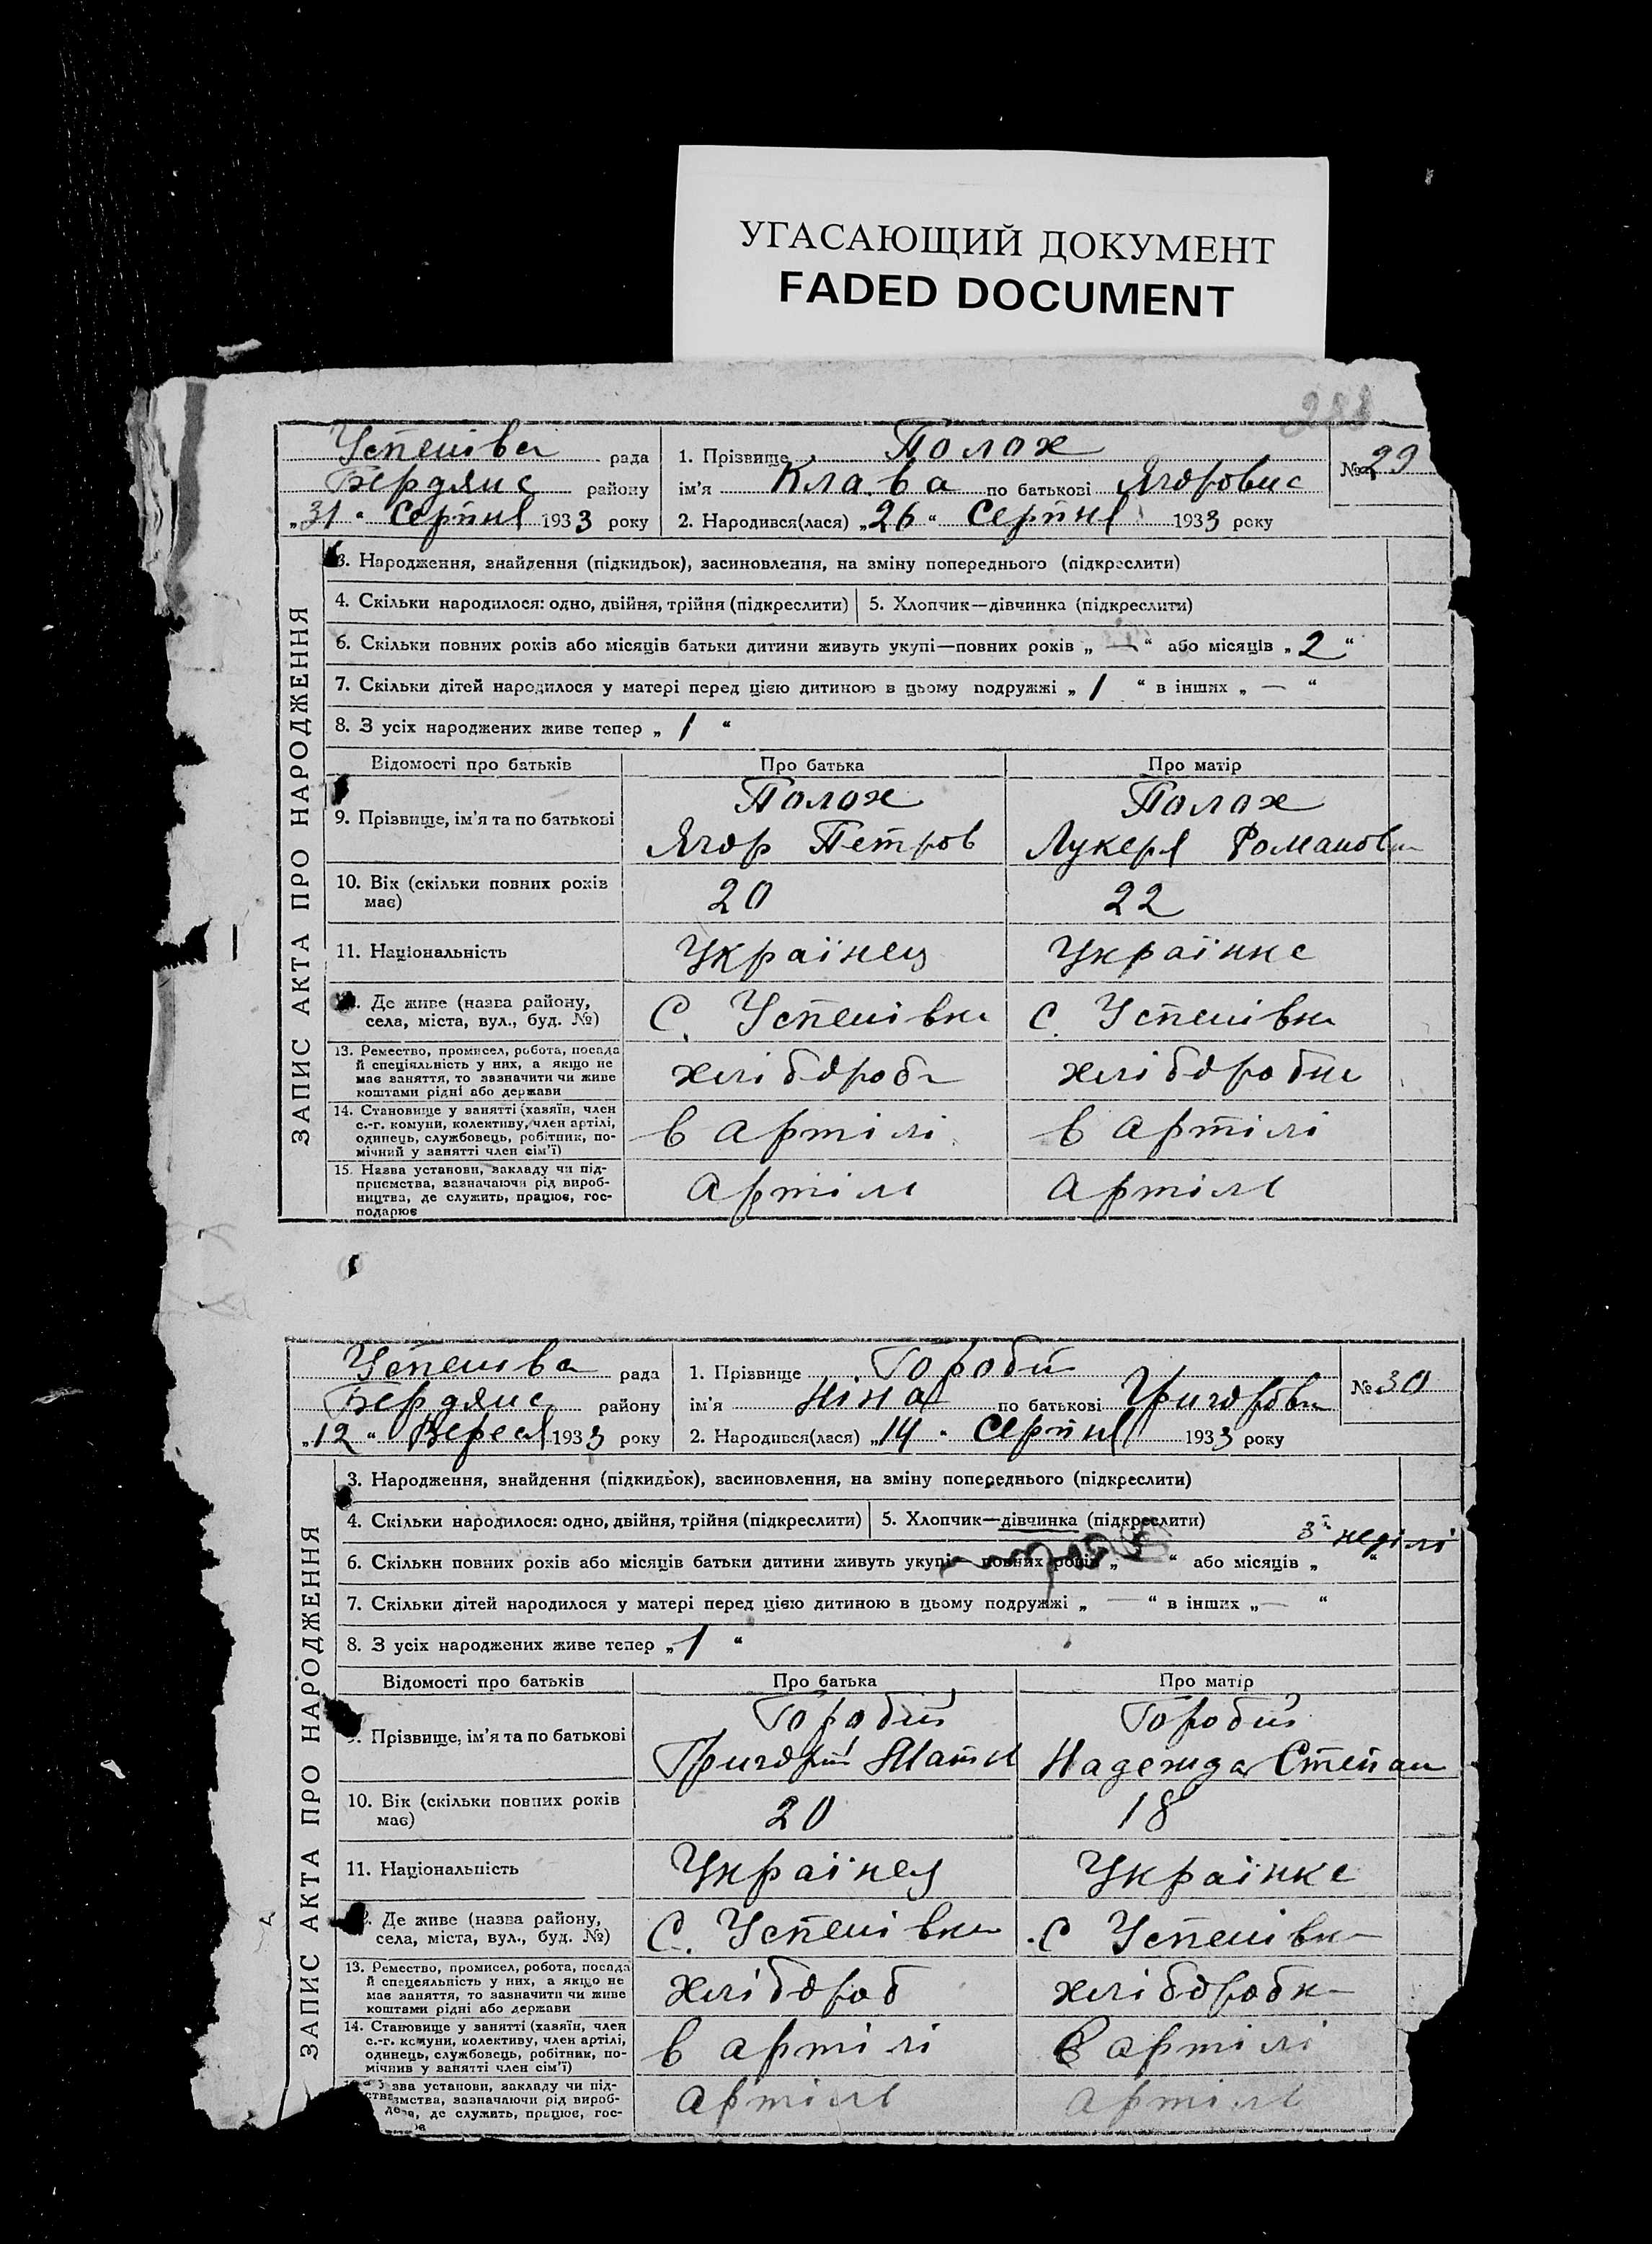 УГАСАЮЩИЙ ДОКУМЕНТ
FADED DOCUMENT
288
Успенівка рада
Бердянс району
„31“ Серпня 1933 року
1. Прізвище Полох
ім’я Клава по батькові Ягоровна
2. Народився(лася) „26“ Серпня 1933 року
№ 29
ЗАПИС АКТА ПРО НАРОДЖЕННЯ
3. Народження, знайдення (підкидьок), засиновлення, на зміну попереднього (підкреслити)
4. Скільки народилося: одно, двійня, трійня (підкреслити) 5. Хлопчик—дівчинка (підкреслити)
6. Скільки повних років або місяців батьки дитини живуть укупі—повних років „ — “ або місяців „ 2 “
7. Скільки дітей народилося у матері перед цією дитиною в цьому подружжі „ 1 “ в інших „ — “
8. З усіх народжених живе тепер „ 1 “
Відомості про батьків Про батька Про матір
9. Прізвище, ім’я та по батькові
Полох Полох
Ягор Петров Лукеря Романовн
10. Вік (скільки повних років
має)
20 22
11. Національність Українец Українка
12. Де живе (назва району,
села, міста, вул., буд. №)
С. Успенівка С. Успенівка
13. Ремество, промисел, робота, посада
й спеціяльність у них, а якщо не
має заняття, то зазначити чи живе
коштами рідні або держави
хліборобка
14. Становище у занятті (хазяїн, член
с.-г. комуни, колективу, член артілі,
одинець, службовець, робітник, по-
мічний у занятті член сім’ї)
в артілі в артілі
15. Назва установи, закладу чи під-
приємства, вазначаючи рід вироб-
ництва, де служить, працює, гос-
подарює
Артіль Артіль
Успенівка рада
Бердянс району
„12“ Вересня 1933 року
1. Прізвище Горобий
ім’я Ніна по батькові Григоровн
2. Народився(лася) „14“ Серпня 1933 року
№ 30
ЗАПИС АКТА ПРО НАРОДЖЕННЯ
3. Народження, знайдення (підкидьок), засиновлення, на зміну попереднього (підкреслити)
4. Скільки народилося: одно, двійня, трійня (підкреслити) 5. Хлопчик—дівчинка (підкреслити)
6. Скільки повних років або місяців батьки дитини живуть укупі— повних років „ “ або місяців „ 3 неділі “
7. Скільки дітей народилося у матері перед цією дитиною в цьому подружжі „ — “ в інших „ — “
8. З усіх народжених живе тепер „ 1 “
Відомості про батьків Про батька Про матір
9. Прізвище, ім’я та по батькові
Горобий Горобий
Григорій Надежда Степан
10. Вік (скільки повних років
має)
20 18
11. Національність Українец Українка
Де живе (назва району,
села, міста, вул., буд. №)
С. Успенівка С Успенівка
13. Ремество, промисел, робота, посада
й спецеяльність у них, а якщо не
має заняття, то зазначити чи живе
коштами рідні або держави
хлібороб хліборобка
14. Становище у занятті (хазяїн, член
с.-г. комуни, колективу, член артілі,
одинець, службовець, робітник, по-
мічнив у занятті член сім’ї)
в артілі в артілі
зва установи, закладу чи під-
ємства, зазначаючи рід вироб-
де служить, працює, гос-
Артіль Артіль